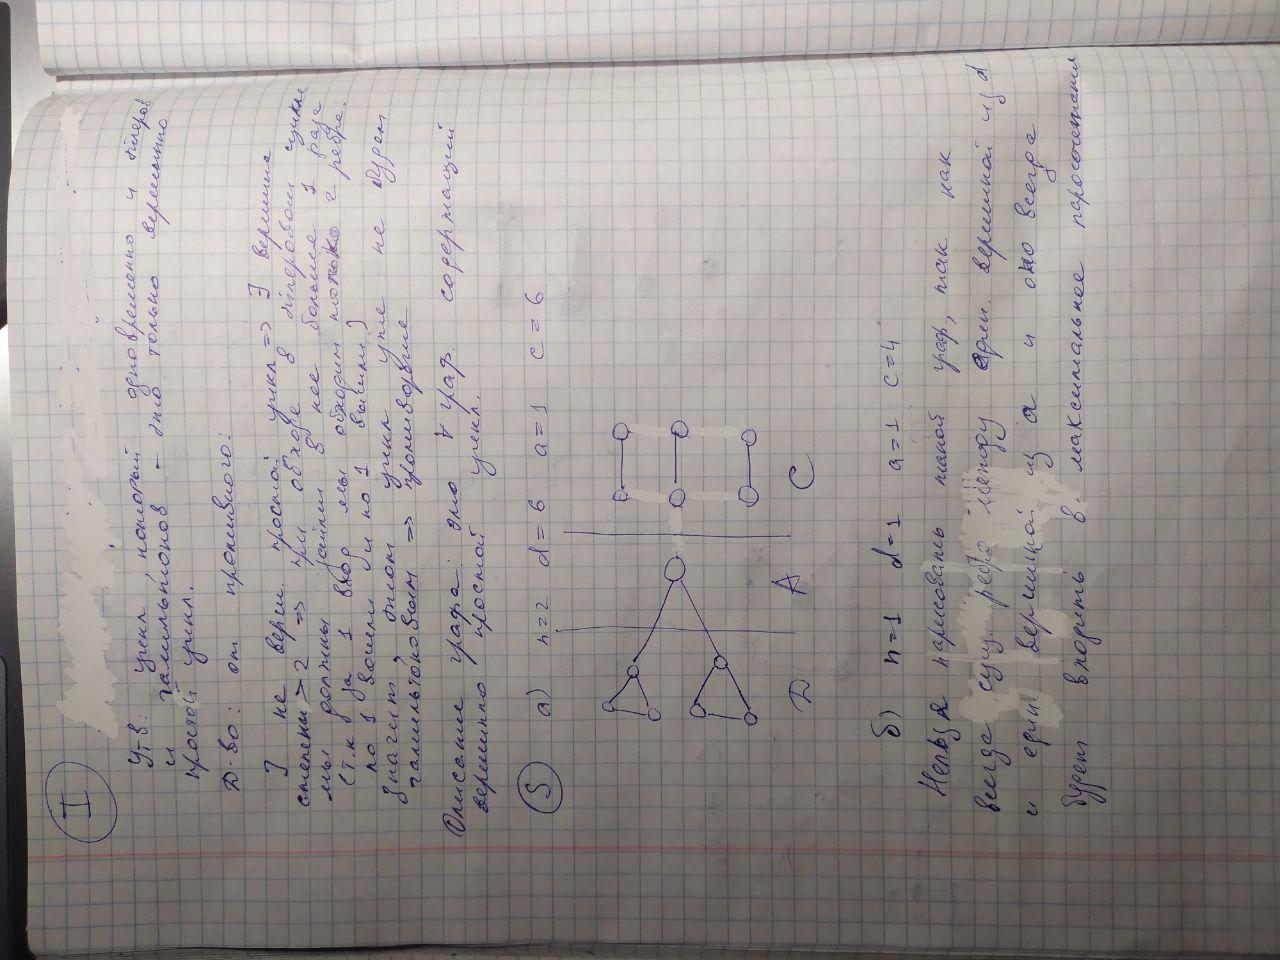 I
Утв: цикл, который одновременно и эйлеров
и гамильтонов - это только вершинно
простой цикл.
Д-во: от противного:
] не верш. простой цикл => ∃ вершина
степени > 2 => при обходе в эйлеровом цикле
мы должны зайти в нее больше 1 раза
(т.к за 1 вход мы обходим только 2 ребра:
по 1 вошли и по 1 вышли)
Значит, этот цикл уже не будет
гамильтоновым => противоречие
Описание графа: это ∀ граф. содержащий
вершинно простой цикл.
5 а) n=2 d=6 a=1 c=6
Д А С
б) n=1 d=1 a=1 c=4
Нельзя нарисовать такой граф, так как
всегда сущ. ребро между един. вершиной из d
и един. вершиной из a и оно всегда
будет входить в максимальное паросочетания